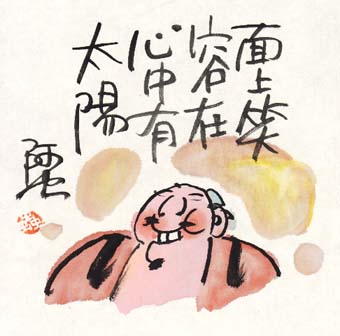 面上笑
容在
心中有
太陽
阿虫